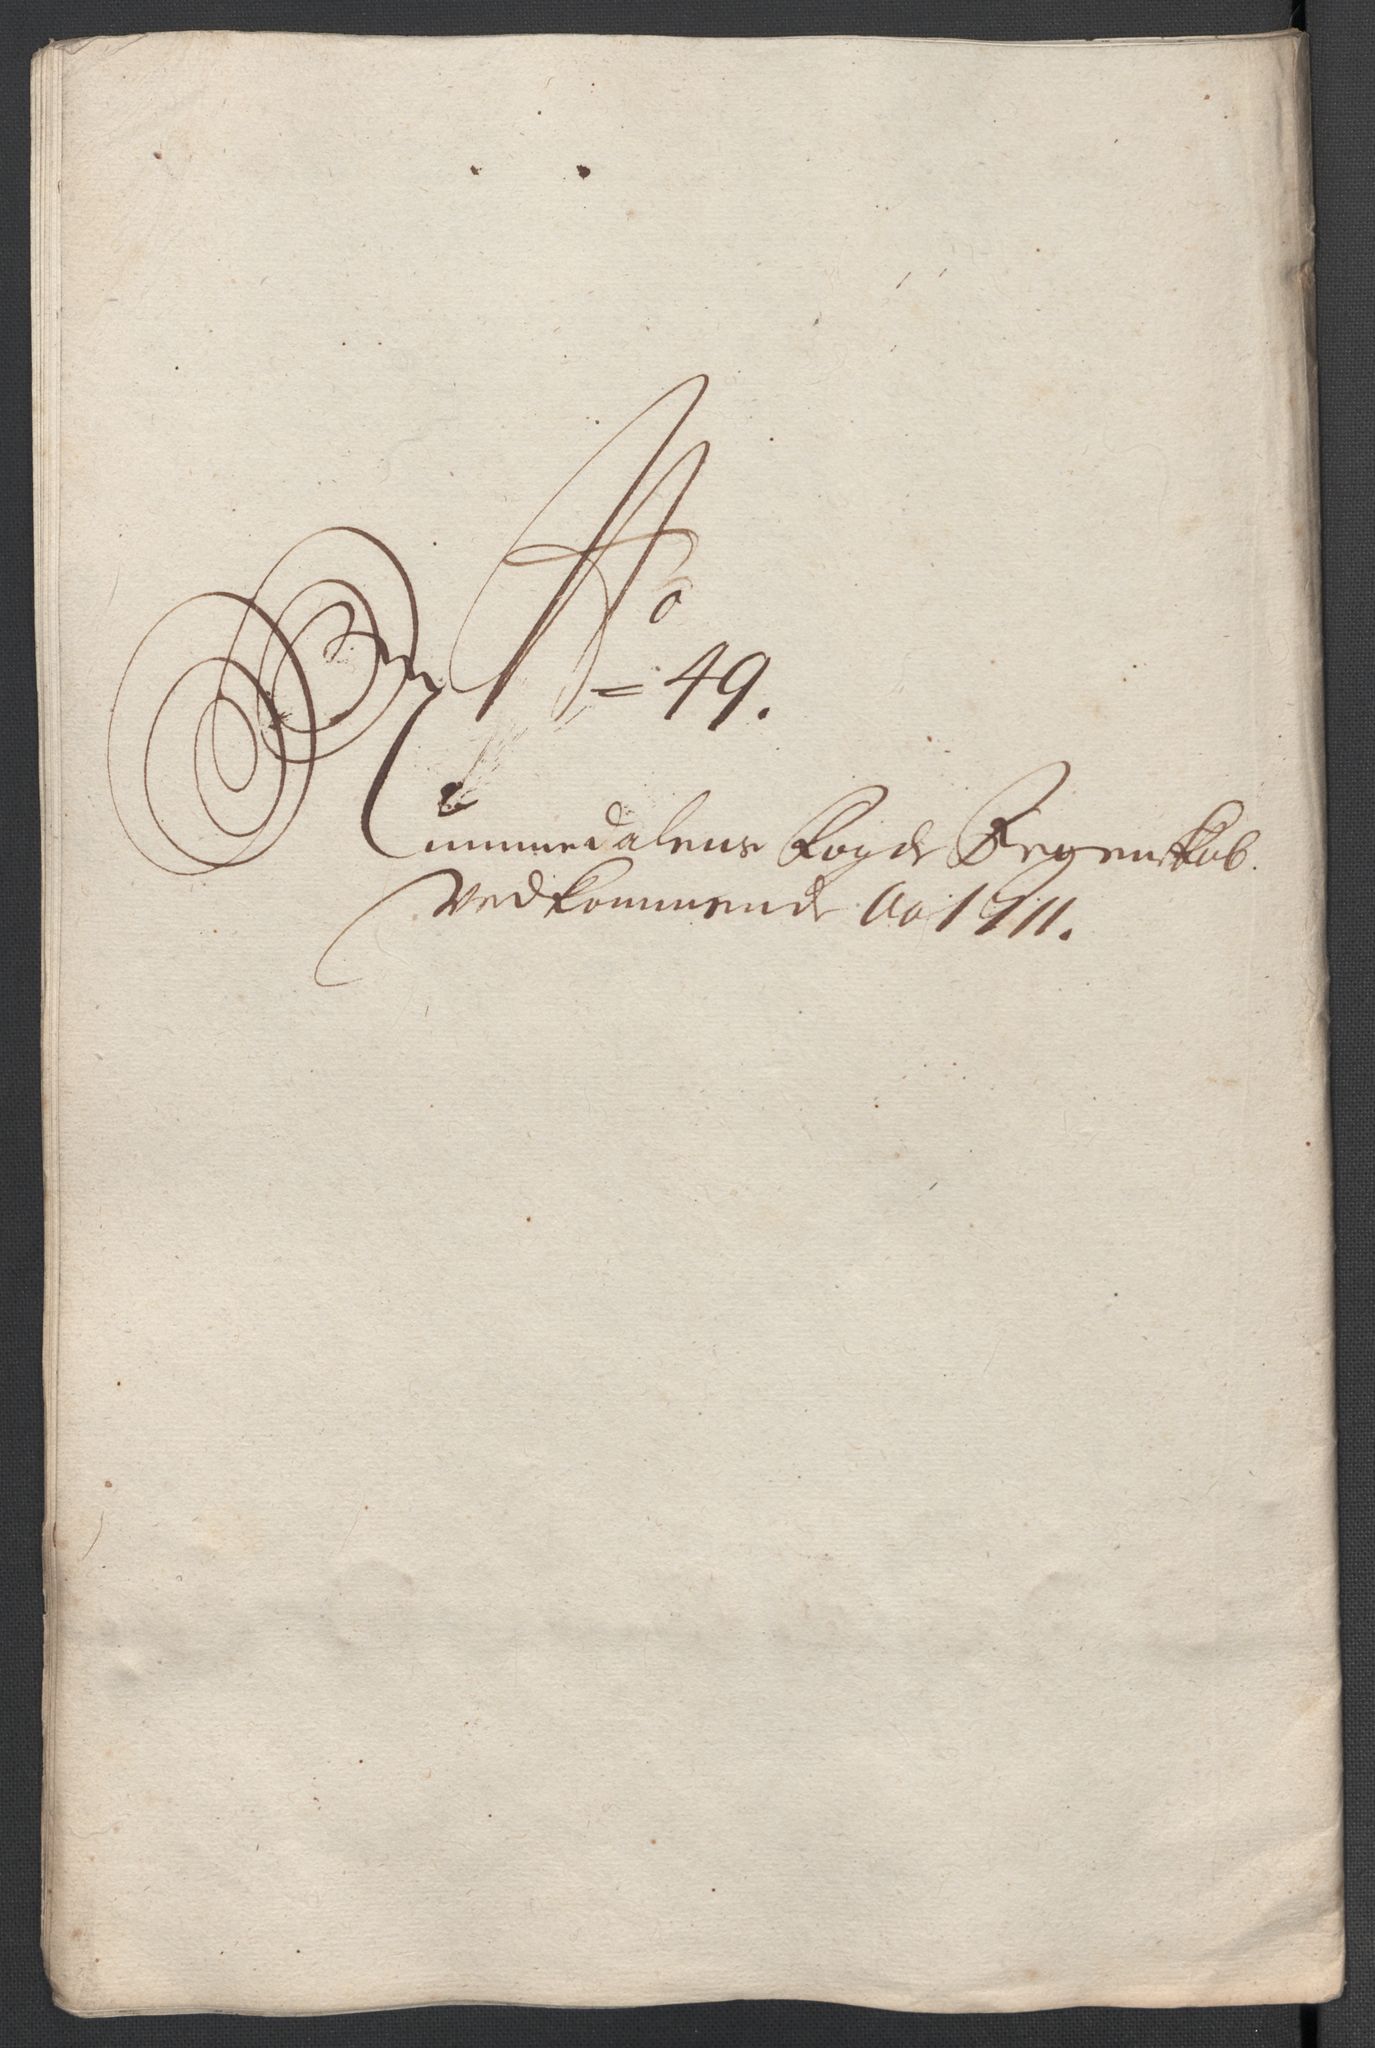 No
= 49.
Nummedalens Fogde Regenskab.
Vedkommende Ao 1711.